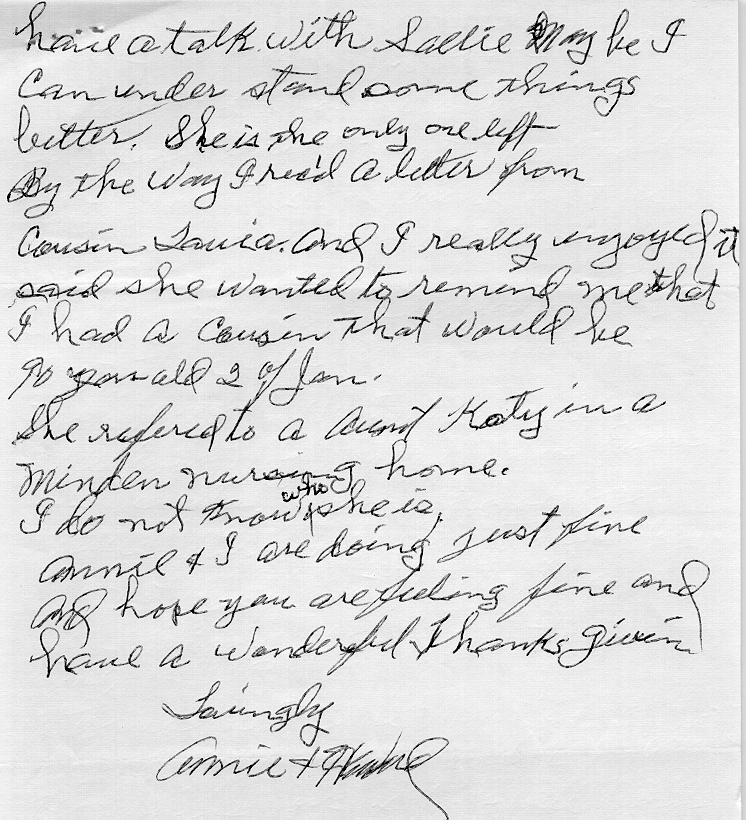 have a talk with Sallie May be I
Can under stand some things
better. She is the only one left
By the Way I rec'd a letter from
Cousin Louia. And I really enjoyed it
said she wanted to remind me that
I had a Cousin that would be
90 year old 2 of Jan.
She refered to a Aunt Katy in a
Minden nursing home.
I do not know who she is,
Annie & I are doing just fine
And hope you are feeling fine and
have a wonderful Thanks Givin
Lovingly
Annie +